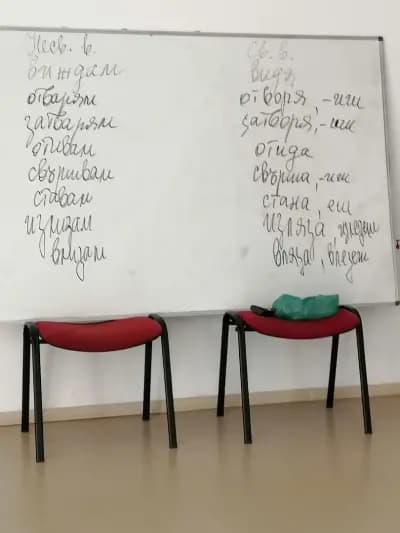 Несв. в.
виждам
отварям
затварям
отивам
свършвам
ставам
излизам
влизам
Св. в.
видя
отворя, -иш
затворя, -иш
отида
свърша, -иш
стана, еш
изляза излезеш
вляза, влезеш